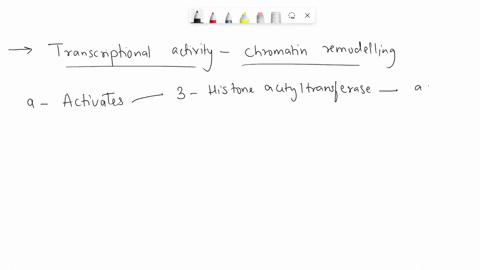 → Transcriptional activity - chromatin remodelling
a - Activates — 3 - Histone acetyltransferase — a